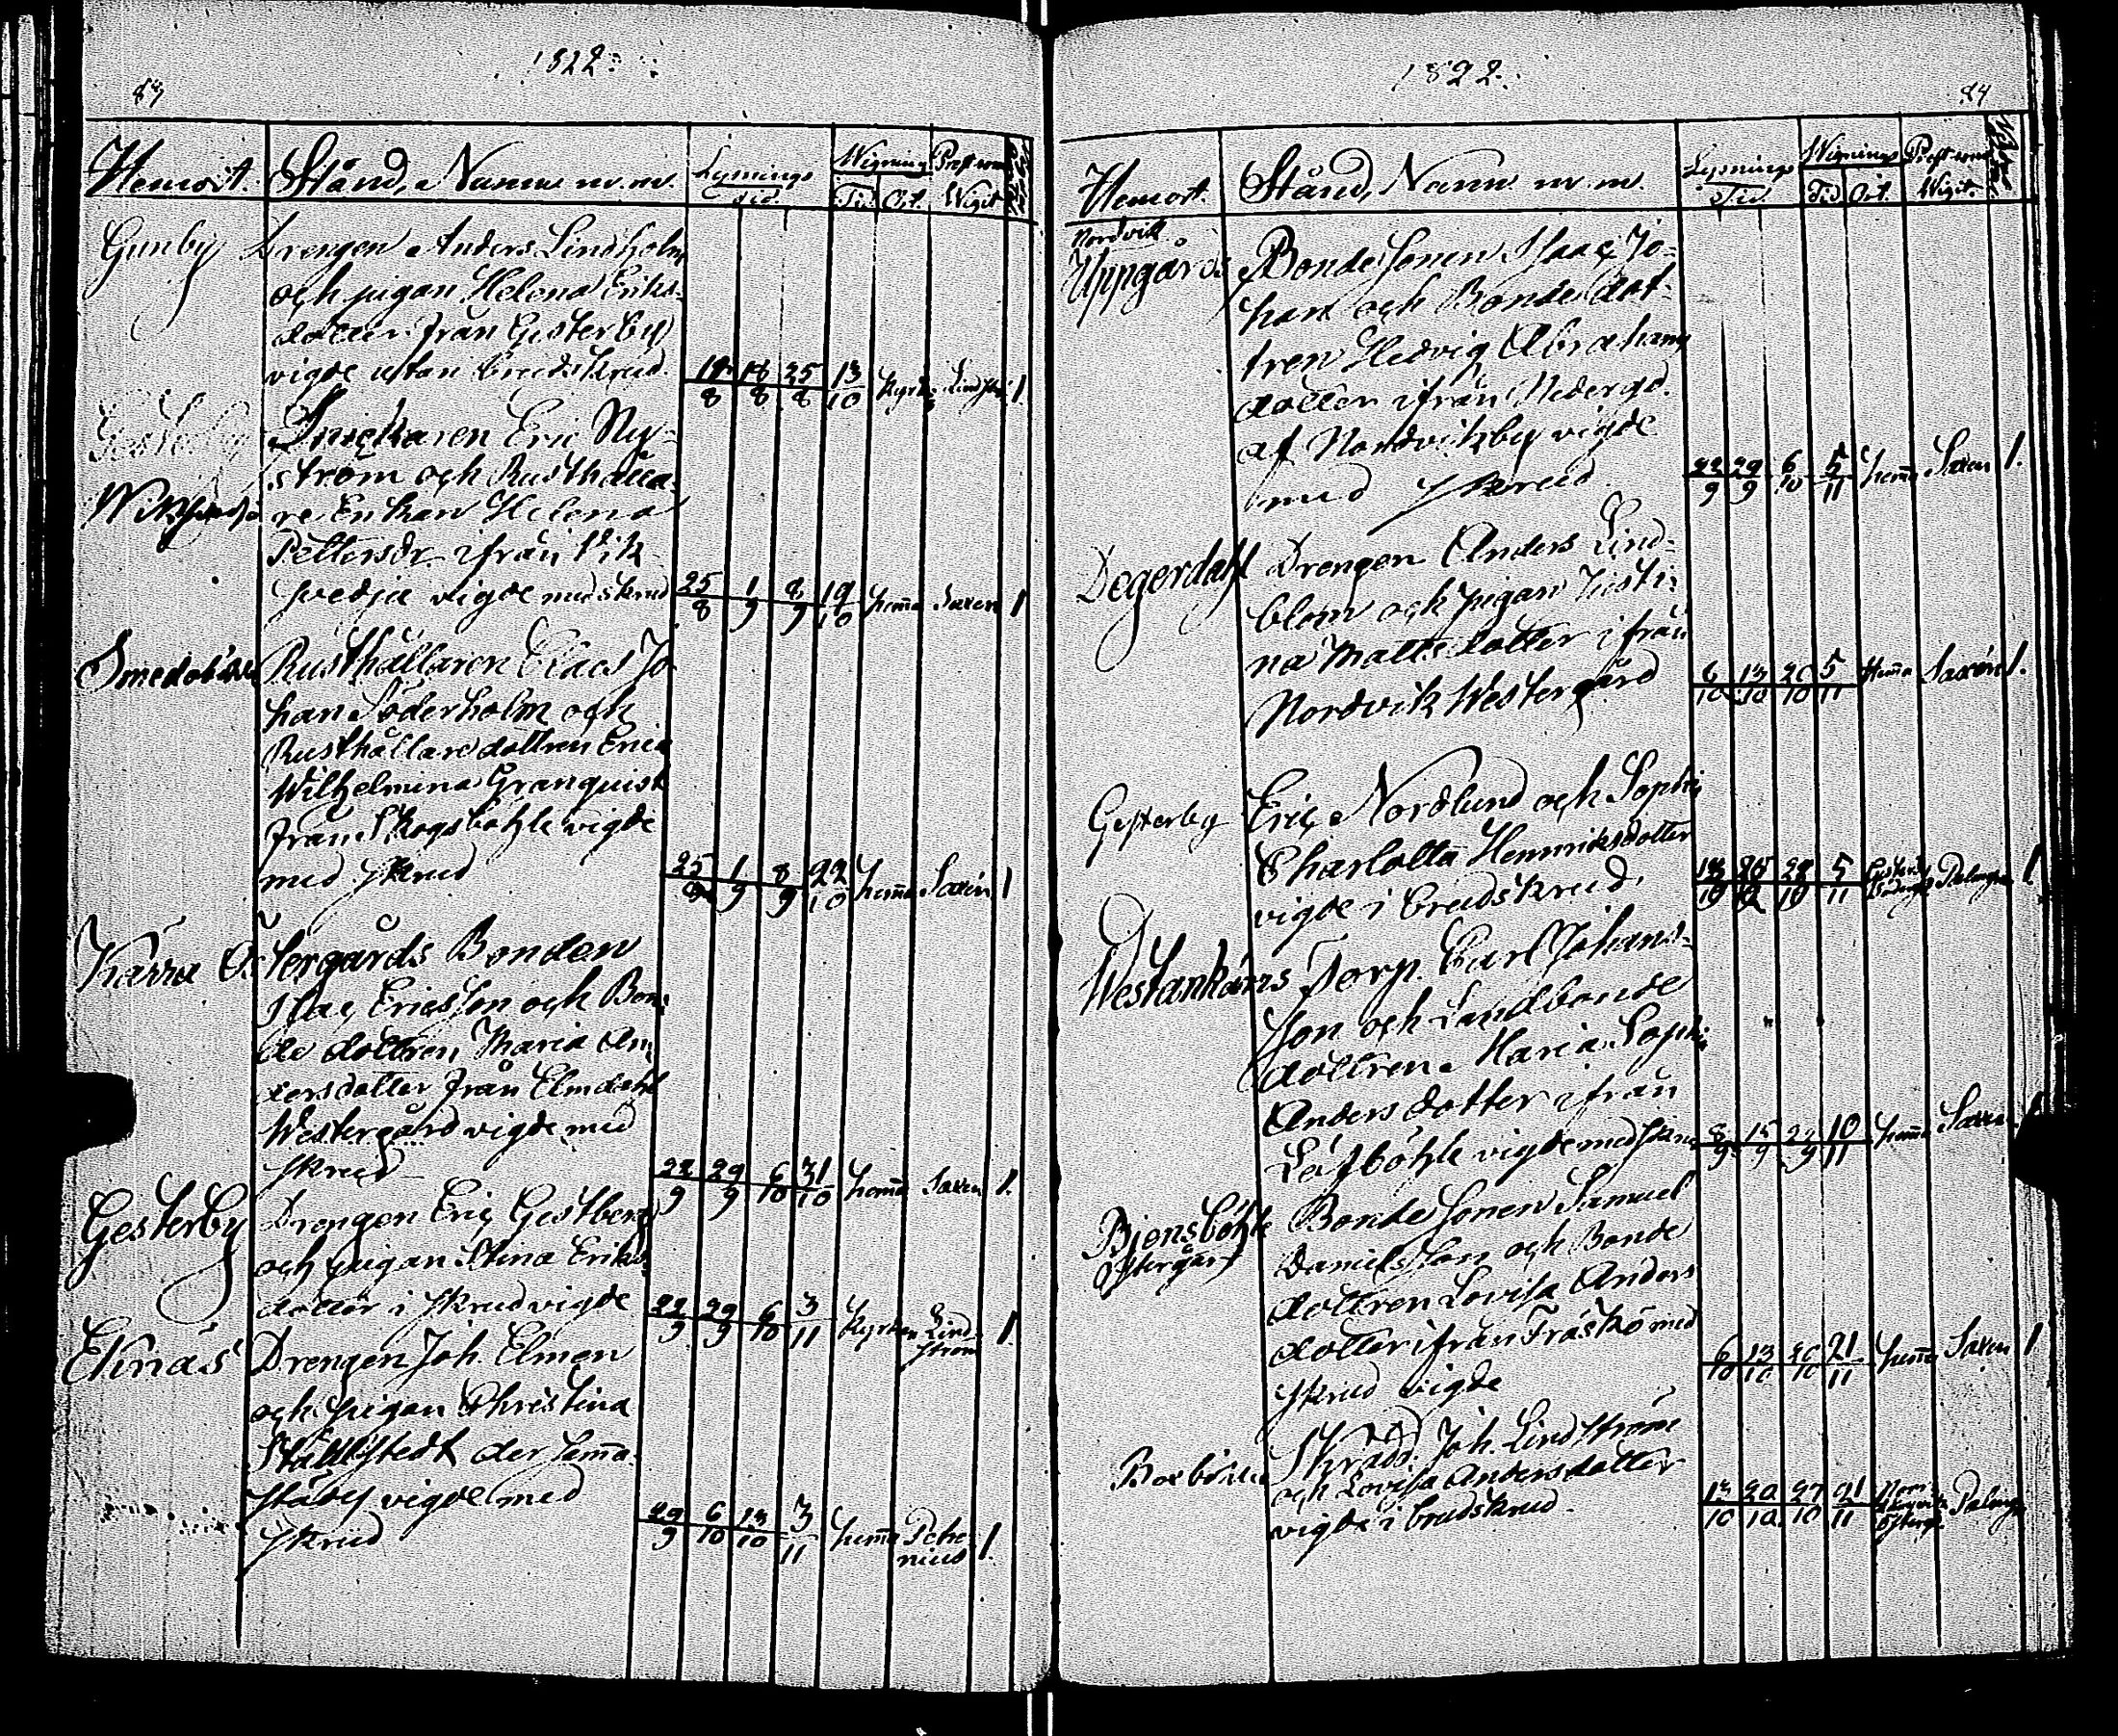 1822
83
Hemort. Stånd, Namn m.m. Lysnings Wignings Prest som
Tid. Tid Ort. Wigt
Gunby Drengen Anders Lindholm
och pigan Helena Eriks-
dotter från Gesterby
vigde utan brudskrud. 11/8 18/8 25/8 13/10 1
Gesterby Snickaren Eric Ny-
ström och Rusthålla-
re Enkan Helena
Pettersdr ifrån Vik
svedja vigde med skrud 25/8 1/9 8/9 19/10 hema Saxen 1
Rusthållaren Claes Jo
han Söderholm och
Rusthållare dottren Erica
Wilhelmina Granquist
från Skogsböhle vigde
med skrud 25/8 1/9 8/9 22/10 hema Saxén 1
Kärra Östergårds Bonden
Isac Ericsson och Bon-
de dottren Maria An-
dersdotter från Elmdahl
Westergård vigde med
skrud 22/9 29/9 6/10 31/10 hema Saxen 1.
Gesterby Drengen Eric Gestberg
och pigan Stina Eriks-
dotter i skrud vigde 22/9 29/9 6/10 3/11 Kyrkan Lind-
ström 1.
Elmäs Drengen Joh. Elmen
och pigan Christina
Stållstedt der hema
vigde med
skrud 29/9 6/10 13/10 3/11 hema 1.
1822.
84
Hemort. Stånd, Namn m.m. Lysnings Wignings Prest som
Tid. Tid Ort. Wigt.
Nordvik
Uppgårds Bonde Sonen Isaac Jo-
han och Bonde dot-
tren Hedvig Abrahams
dotter ifrån Nedergd.
af Nordvikby vigde
med skrud 22/9 29/9 6/10 5/11 hema Saxen 1.
Degerdahl Drengen Anders Lind-
blom och pigan Justi-
na Matts dotter ifrån
Nordvik Westergård 6/10 13/10 20/10 5/11 Hema Saxén 1.
Gesterby Eric Nordlund och Sophi
Charlotta Henriksdotter
vigde i brudskrud. 5/11 1
Westankärrs Torp. Carl Johans-
son och Landbonde
dottren Maria Sophi
Anders dotter ifrån
Löfböhle vigde med skru 8/9 15/9 22/9 10/11 hema Saxen
Björnsböhle Bonde sonen Samuel
Östergård Danielsson och Bonde
dottren Lovisa Anders
dotter ifrån Träskö med
skrud vigde 6/10 13/10 20/10 21/11 hema Saxen 1
Skrädd. Joh. Lindström
och Lovisa Andersdotter
vigde i brudskrud. 13/10 20/10 27/10 21/11